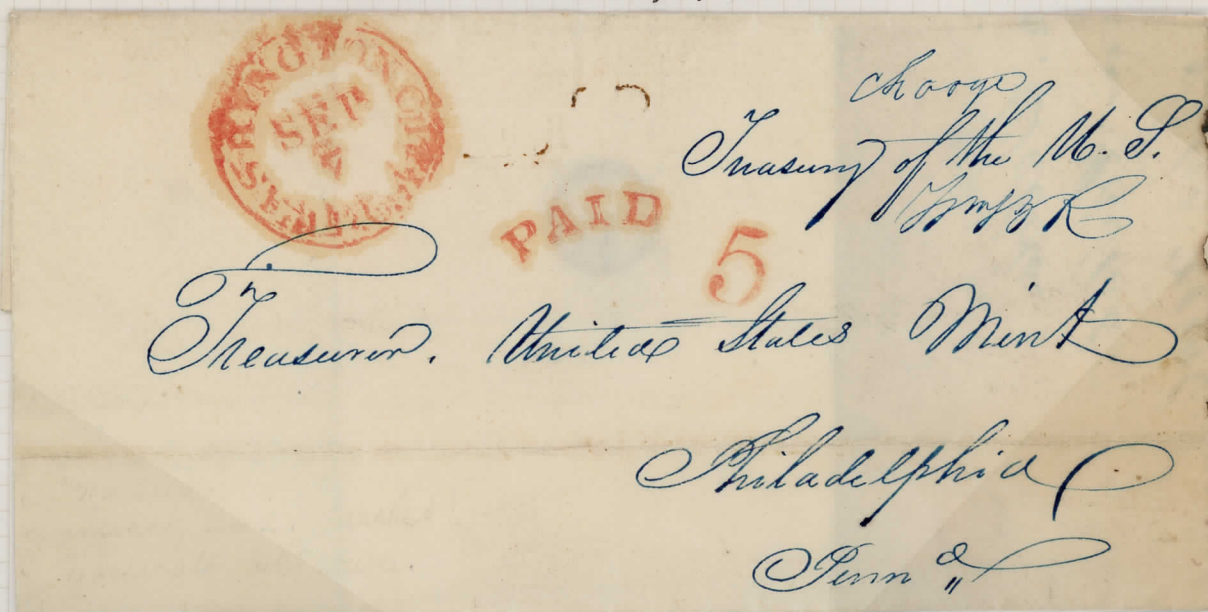 WASHINGTON CITY
SEP
PAID
5
charge
Treasury of the U. S.
Treasurer. United States Mint
Philadelphia
Penn a